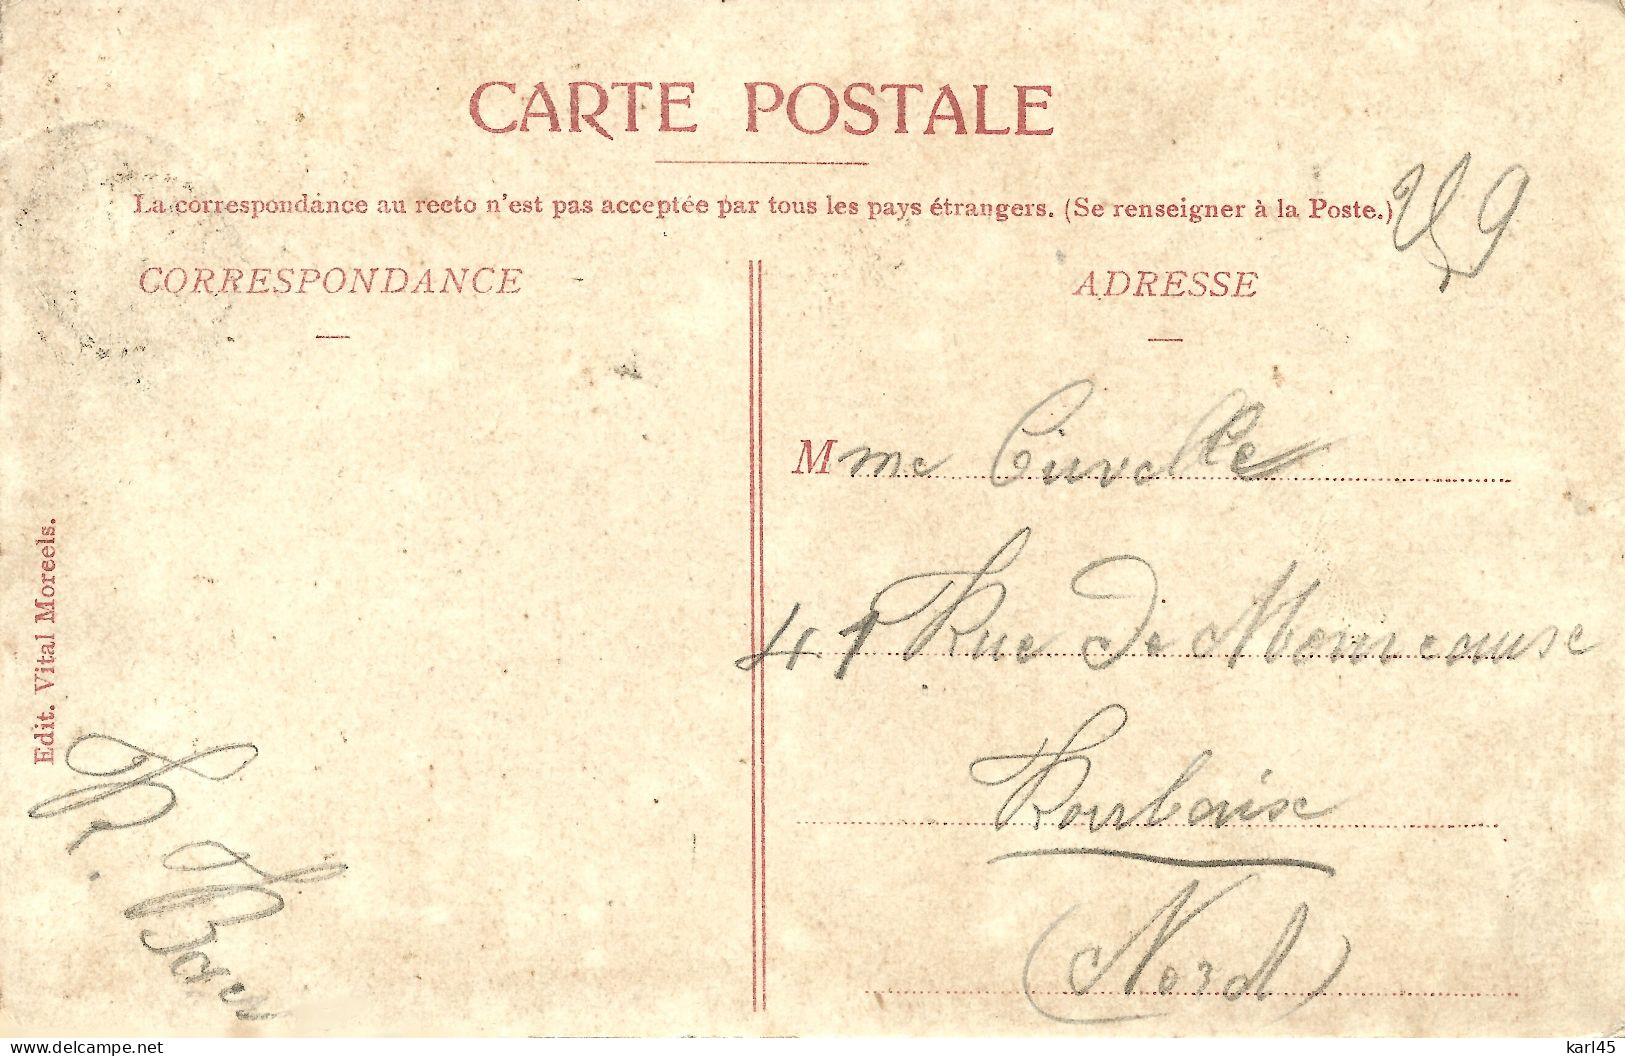 CARTE POSTALE
La correspondance au recto n'est pas acceptée par tous les pays étrangers. (Se renseigner à la Poste.)
CORRESPONDANCE
ADRESSE
Mme Cuvelle
41 Rue De
Roubaix
(Nord)
Edit. Vital Moreels.
delcampe.net
karl45